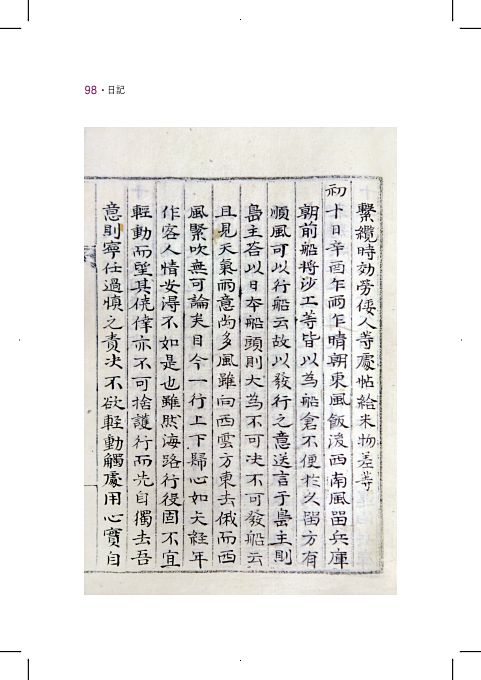 98 • 日記
繫纜時効勞倭人等處帖給米物差等
初十日辛酉乍雨乍晴朝東風飯後西南風留兵庫
朝前船將沙工等皆以爲船倉不便於久留方有
順風可以行船云故以發行之意送言于島主則
島主答以日本船頭則大爲不可決不可發船云
且見天氣雨意尙多風雖向西雲方東去俄而西
風緊吹無可論矣目今一行上下歸心如矢經年
作客人情安得不如是也雖然海路行役固不宜
輕動而望其僥倖亦不可捨護行而先自獨去吾
意則寧任過愼之責決不欲輕動觸處用心實自